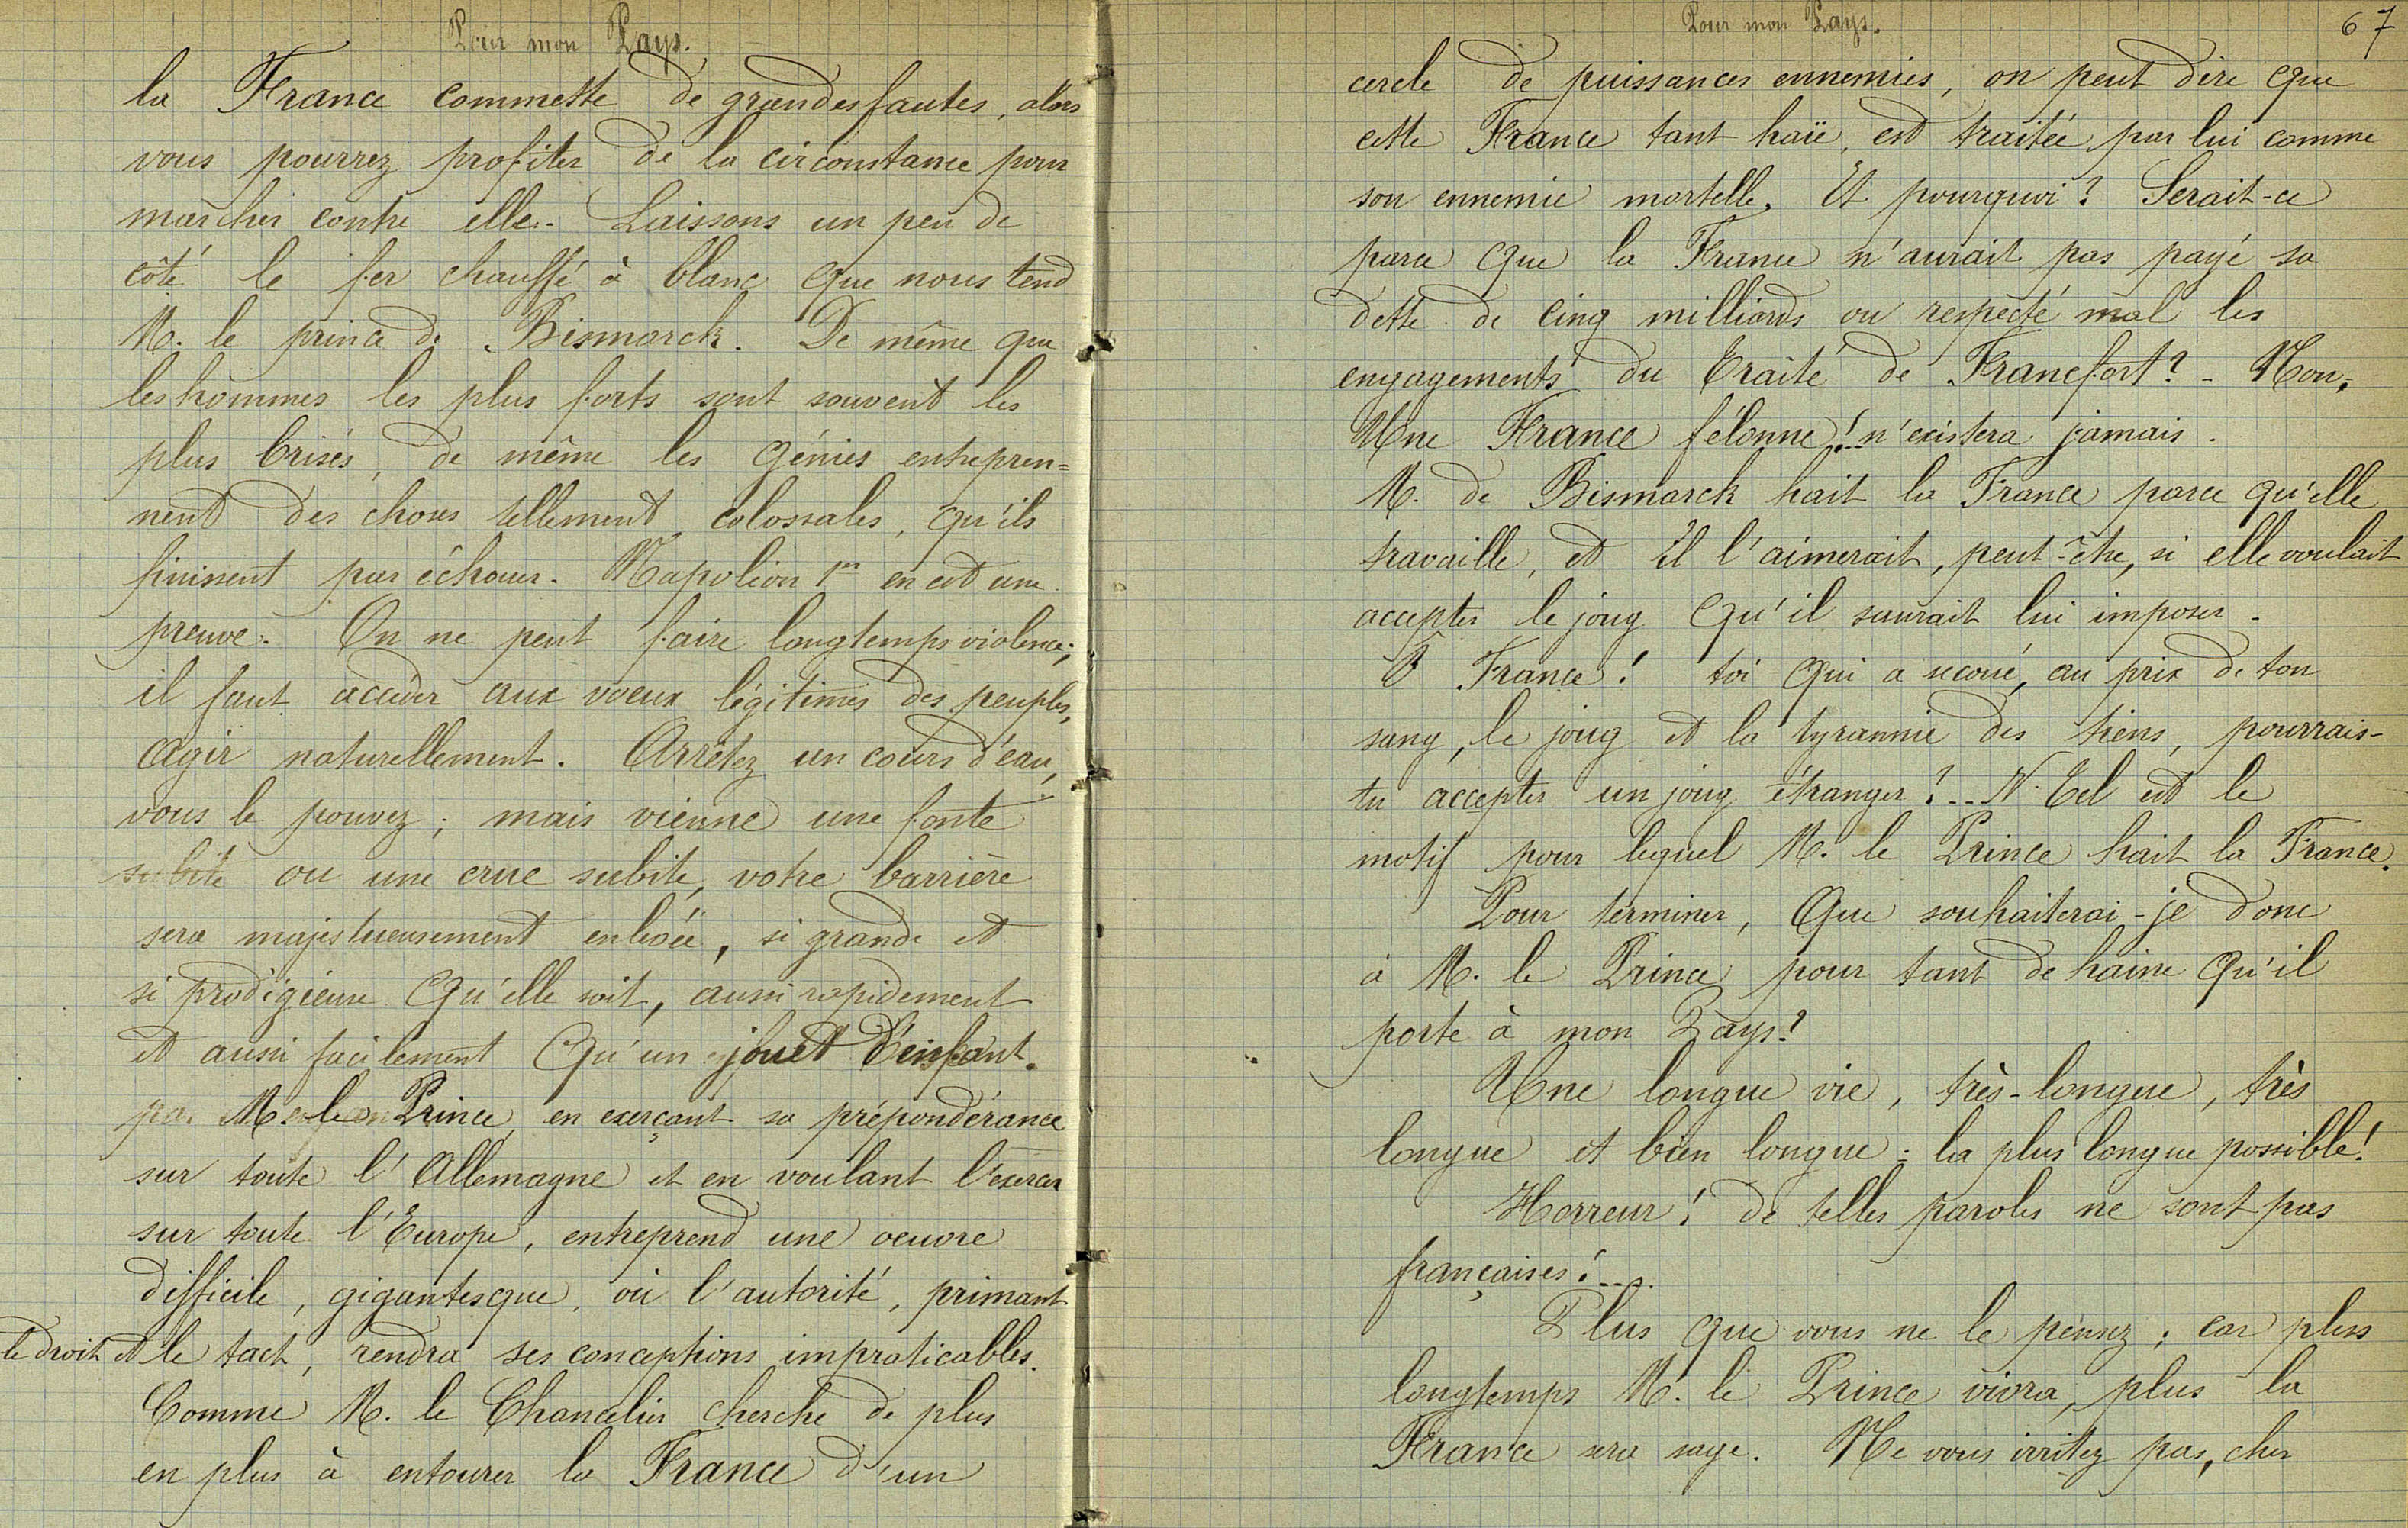 Pour mon Pays.
la France commette de grandes fautes, alors
vous pourrez profiter de la circonstance pour
marcher contre elle. Laissons un peu de
côté le fer chauffé à blanc que nous tend
M. le prince de Bismarck. De même que
les hommes les plus forts sont souvent les
plus brisés, de même les génies entrepren=
nent des choses tellement colossales, qu'ils
finissent par échouer. Napoléon 1er en est une
preuve. On ne peut faire longtemps violence;
il faut accéder aux vœux légitimes des peuples,
agir naturellement. Arrêtez un cours d'eau,
vous le pouvez; mais vienne une fonte
subite ou une crue subite, votre barrière
sera majestueusement enlevée, si grande et
si prodigieuse qu'elle soit, aussi rapidement
et aussi facilement qu'un jouet d'enfant.
M. le Prince, en exerçant sa prépondérance
sur toute l'Allemagne et en voulant l'exercer
sur toute l'Europe, entreprend une œuvre
difficile, gigantesque, où l'autorité, primant
le droit et le tact, rendra ses conceptions impraticables.
Comme M. le Chancelier cherche de plus
en plus à entourer la France d'un
Pour mon Pays.
67
cercle de puissances ennemies, on peut dire que
cette France tant haïe, est traitée par lui comme
son ennemie mortelle. Et pourquoi? Serait-ce
parce que la France n'aurait pas payé sa
dette de cinq milliards ou respecté mal les
engagements du Traité de Francfort? - Non.
Une France félonne!.. n'existera jamais.
M. de Bismarck hait la France parce qu'elle
travaille, et il l'aimerait, peut-être, si elle voulait
accepter le joug qu'il saurait lui imposer.
Ô France! toi qui a secoué, au prix de ton
sang, le joug et la tyrannie des tiens, pourrais-
tu accepter un joug étranger?... Tel est le
motif pour lequel M. le Prince hait la France.
Pour terminer, que souhaiterai-je donc
à M. le Prince pour tant de haine qu'il
porte à mon Pays?
Une longue vie, très-longue, très
longue et bien longue: la plus longue possible!
Horreur! de telles paroles ne sont pas
françaises!...
Plus que vous ne le pensez; car pluss
longtemps M. le Prince vivra, plus la
France sera sage. Ne vous irritez pas, cher